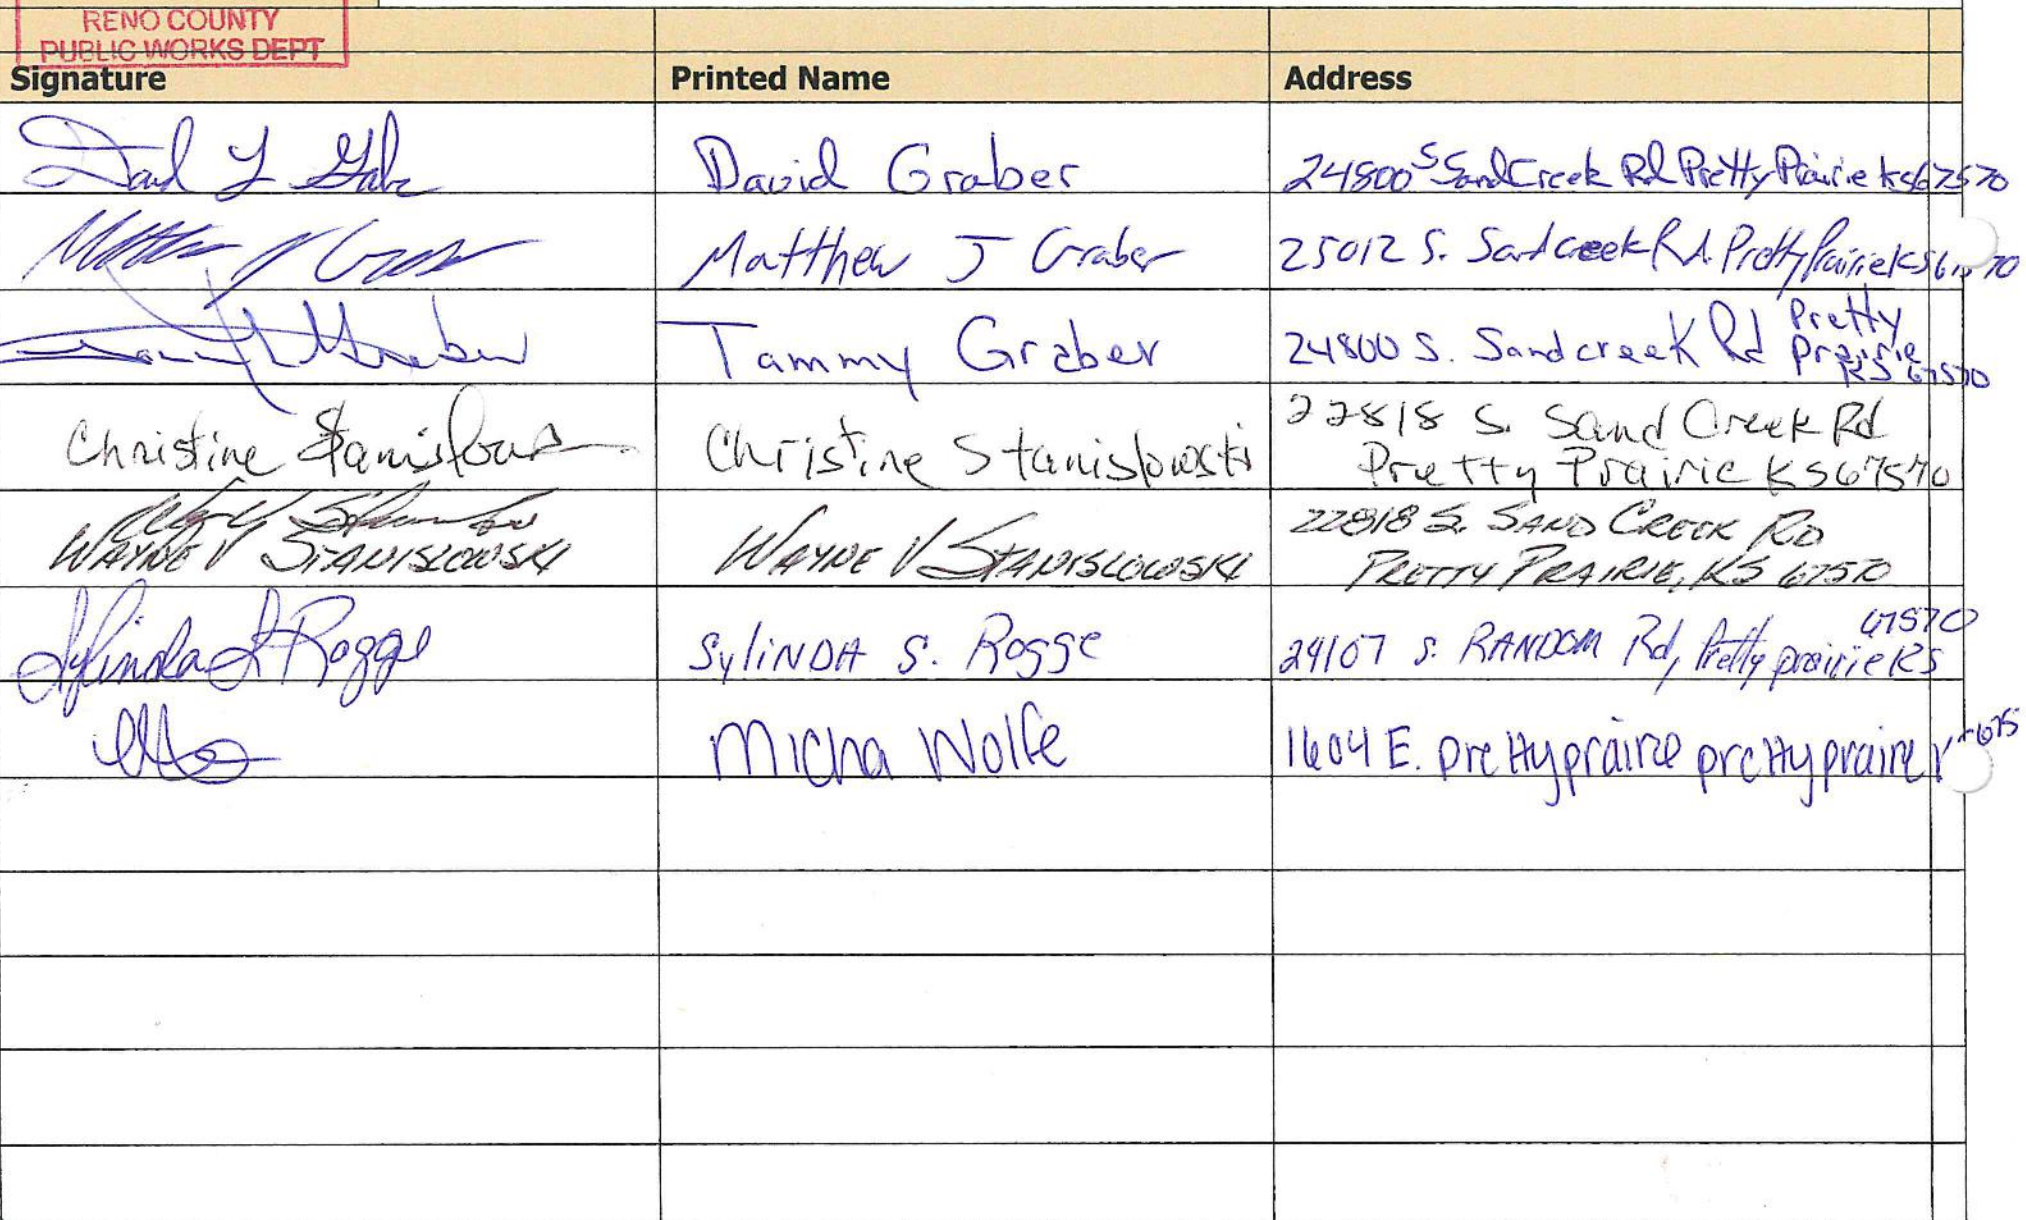 RENO COUNTY
PUBLIC WORKS DEPT
Signature Printed Name Address
David L Graber David Graber 24800 S Sand Creek Rd Pretty Prairie Ks 67570
Matthew J Graber Matthew J Graber 25012 S. Sand creek Rd. Pretty Prairie KS 67570
Graber Tammy Graber 24800 S. Sandcreek Rd Pretty
Prairie
KS 67570
Christine Stanislowski Christine Stanislowski 22818 S. Sand Creek Rd
Pretty Prairie KS 67570
WAYNE V STANISLOWSKI WAYNE V STANISLOWSKI 22818 S. SAND CREEK RD
PRETTY PRAIRIE, KS 67570
Sylinda S Rogge SyliNDA S. Rogge 24107 S. RANDOM Rd, Pretty prairie KS
67570
Micha Wolfe 1604 E. pretty prairie pretty prairie
675